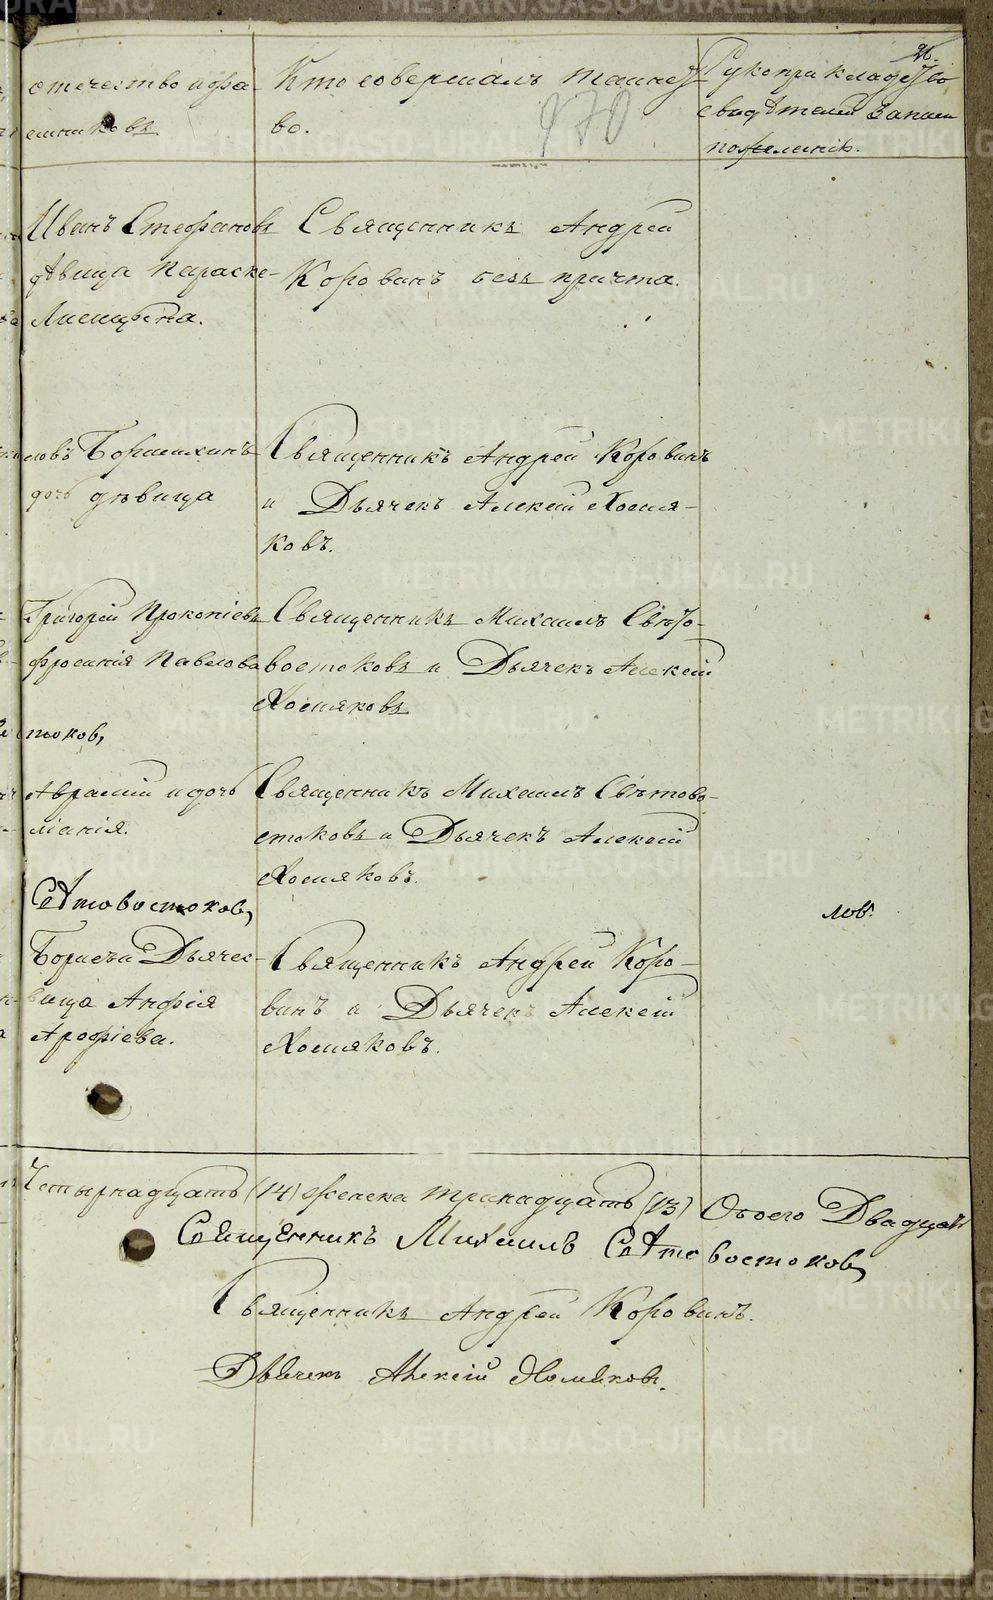 отечество и фа-
мил
Кто совершалъ таинст-
во.
Рукоприкладство
свидѣтелей записи
по желанію.
970
Иванъ Стефановъ
дѣвица Параске-
Священникъ Андрей
Коровинъ безъ причта.
ловъ
дочь дѣвица
Священникъ Андрей Коровинъ
и Дьячекъ Алексій Хомя-
ковъ.
Григорій Прокопіевъ
фросинія Павлова
Священникъ Михаилъ Свѣто-
востоковъ и Дьячекъ Алексій
Хомяковъ
токов,
Авраамій и дочь
міанія.
Священникъ Михаилъ Свѣтово-
стоковъ и Дьячекъ Алексій
Хомяковъ.
Свѣтовостоков,
лов.
Борисъ и Дьячес-
вица Анфія
Арофіева.
Священникъ Андрей Коро-
винъ и Дьячекъ Алексій
Хомяковъ.
Четырнадцать (14) женска тринадцать (13) Обоего Двадцать
Священникъ Михаилъ Свѣтовостоков,
Священникъ Андрей Коровинъ.
Дьячекъ Алексій Хомяков.
METRIKI.GASO-URAL.RU